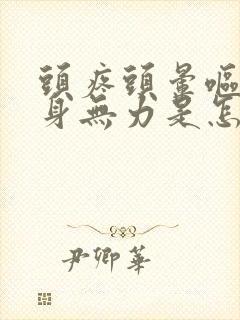 頭疼頭暈嘔
身無力是怎
尹卿華